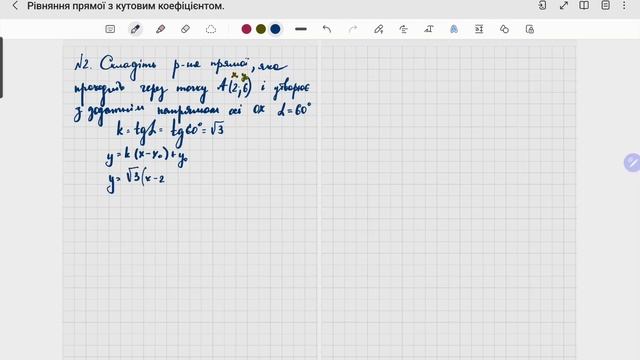 Рівняння прямої з кутовим коефіцієнтом.
№2. Складіть р-ня прямої, яка
проходить через точку A(2,6) і утворює
x y
з додатнім напрямом осі OX α=60°
k = tgα = tg60° = √3
y = k(x-x₀)+y₀
y = √3(x-2